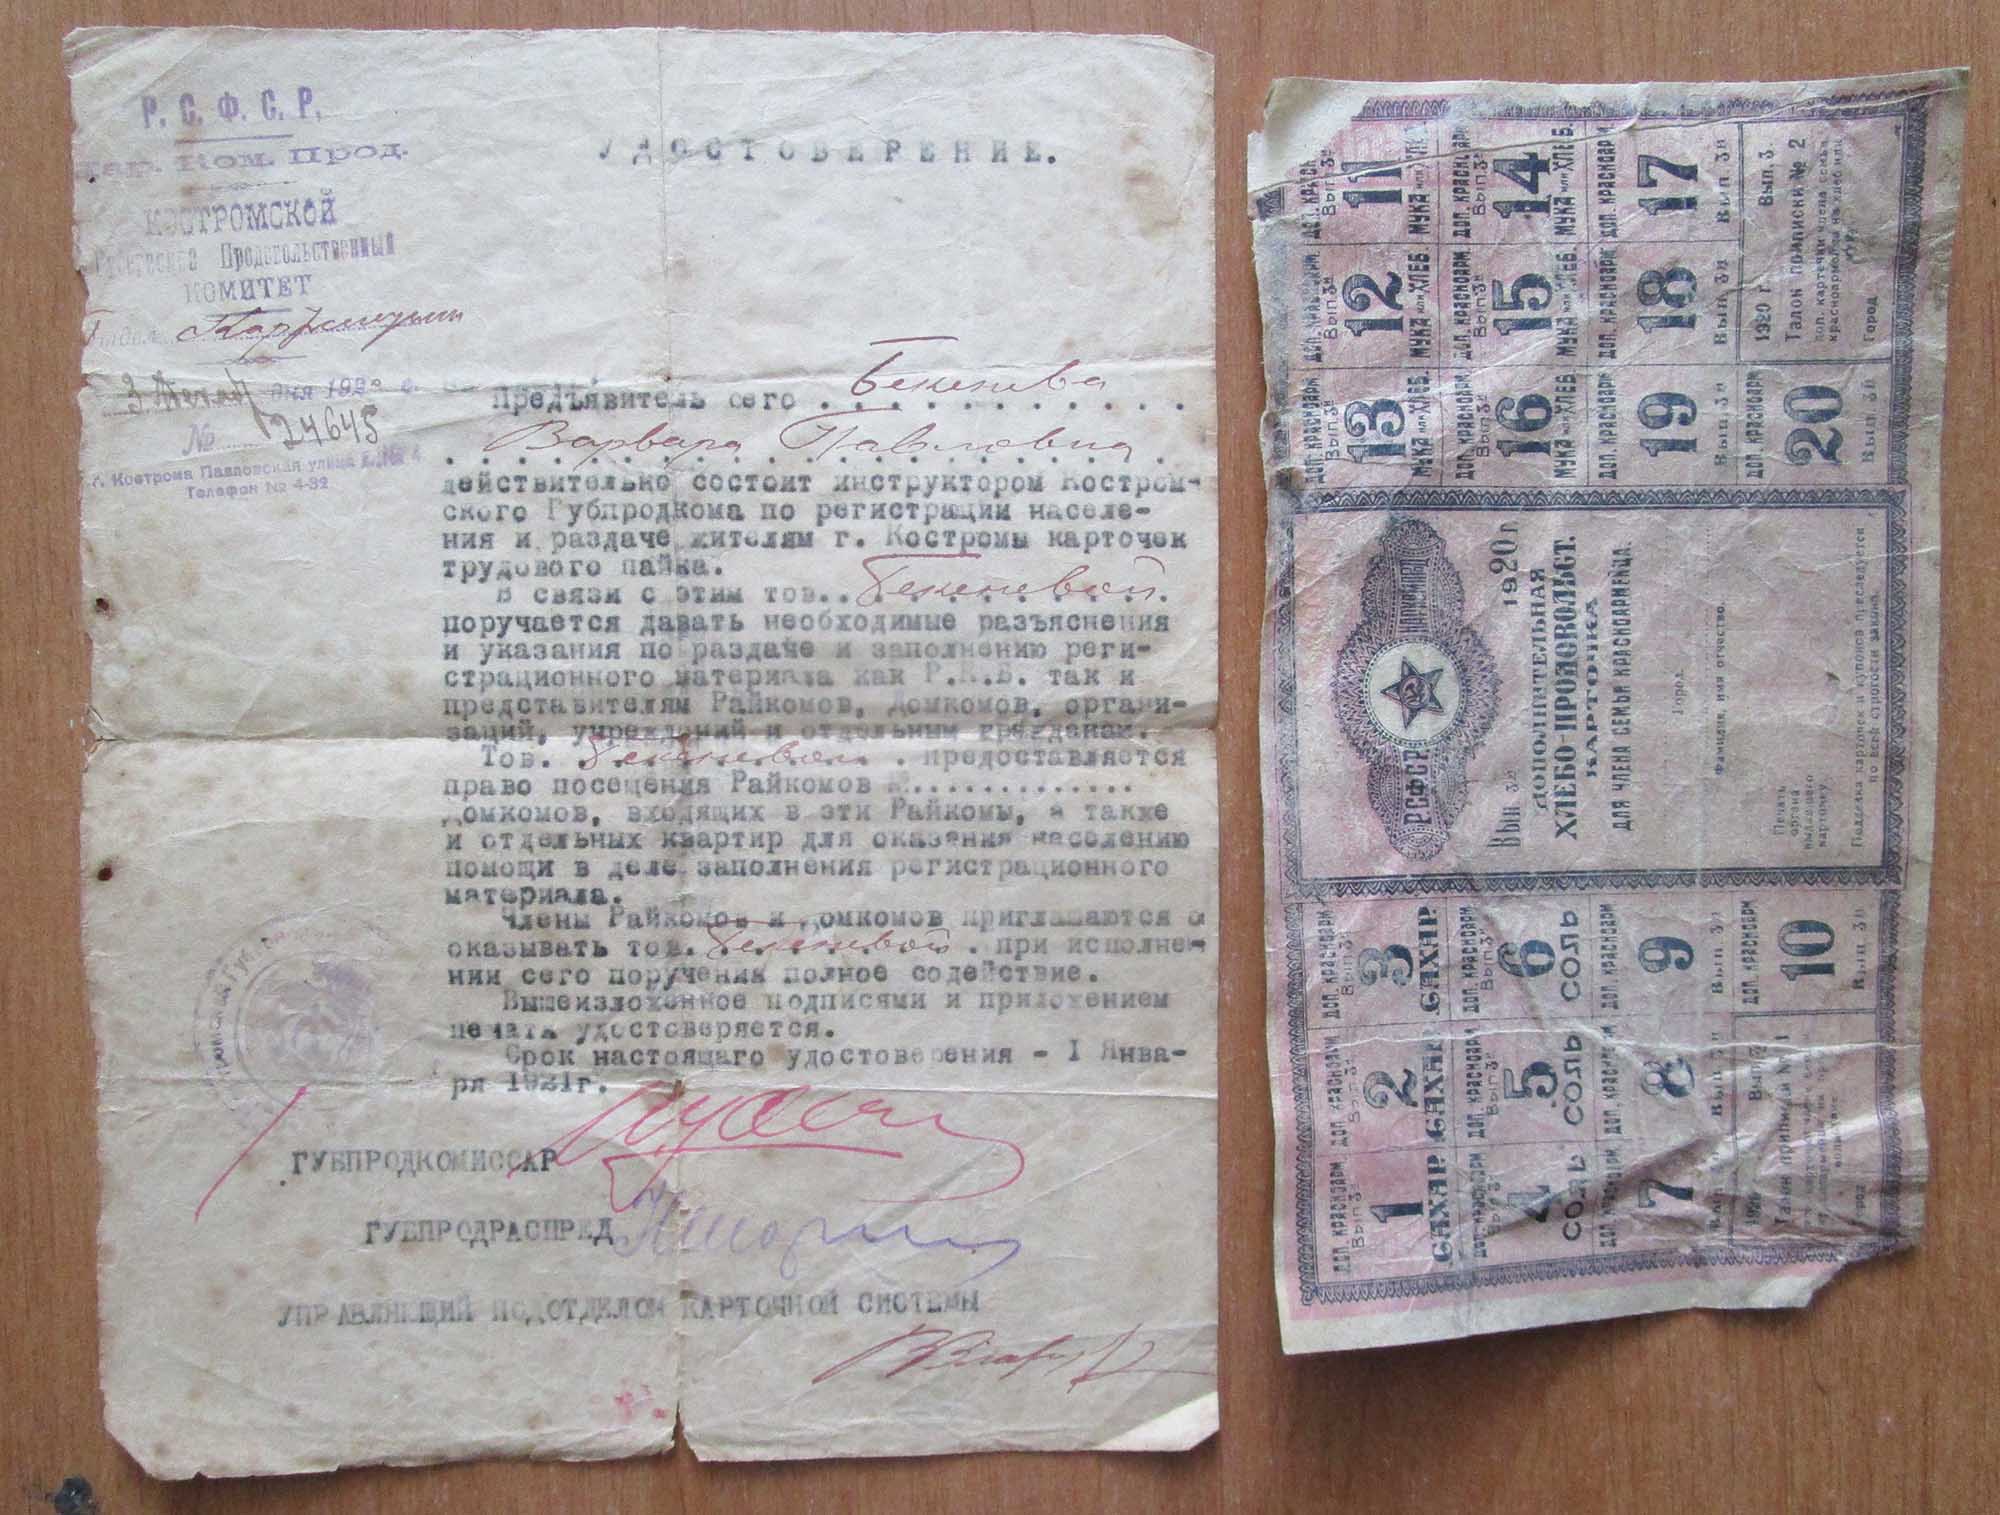 Р. С. Ф. С. Р.
Ком. Прод.
КОСТРОМСКОЙ
Продовольственный
КОМИТЕТ
3 дня 1920 г.
№ 24645
г. Кострома Павловская улица
Телефон № 4-32
УДОСТОВЕРЕНИЕ.
Предъявитель сего
Варвара Павловна
действительно состоит инструктором Костром-
ского Губпродкома по регистрации населе-
ния и раздаче жителям г. Костромы карточек
трудового пайка.
В связи с этим тов.
поручается давать необходимые разъяснения
и указания по раздаче и заполнению реги-
страционного материала как Р.К.Б. так и
представителям Райкомов, Домкомов, органи-
заций, учреждений и отдельным гражданам.
Тов. предоставляется
право посещения Райкомов № .............
Домкомов, входящих в эти Райкомы, а также
и отдельных квартир для оказания населению
помощи в деле заполнения регистрационного
материала.
Члены Райкомов и Домкомов приглашаются
оказывать тов. при исполне-
нии сего поручения полное содействие.
Вышеизложенное подписями и приложением
печати удостоверяется.
Срок настоящаго удостоверения - I Янва-
ря 1921г.
ГУБПРОДКОМИССАР
ГУБПРОДРАСПРЕД
УПРАВЛЯЮЩИЙ ПОДОТДЕЛОМ КАРТОЧНОЙ СИСТЕМЫ
ДОП. КРАСНОАРМ ДОП. КРАСНОАРМ ДОП. КРАСНОАРМ
Вып 3й Вып. 3й Вып. 3й
1 2 3
САХАР САХАР САХАР
ДОП. КРАСНОАРМ ДОП. КРАСНОАРМ ДОП. КРАСНОАРМ
Вып 3й Вып. 3й Вып. 3й
4 5 6
СОЛЬ СОЛЬ СОЛЬ
ДОП. КРАСНОАРМ ДОП. КРАСНОАРМ ДОП. КРАСНОАРМ
7 8 9
Вып. 3й Вып. 3й Вып. 3й
Талон № 1
Город
ДОП. КРАСНОАРМ
10
Вып 3й
РСФСР НАРКОМПРОД
Вып 3й 1920 г
ДОПОЛНИТЕЛЬНАЯ
ХЛЕБО-ПРОДОВОЛЬСТ.
КАРТОЧКА
ДЛЯ ЧЛЕНА СЕМЬИ КРАСНОАРМЕЙЦА.
Город
Фамилия, имя отчество.
Печать
органа
выдавшего
карточку.
Подделка карточек и купонов преследуется
по всей строгости закона.
ДОП. КРАСНОАРМ ДОП. КРАСНОАРМ. ДОП. КРАСН
Вып 3й Вып 3й Вып 3й
13 12 11
МУКА или ХЛЕБ. МУКА или ХЛЕБ. МУКА или
ДОП. КРАСНОАРМ ДОП. КРАСНОАРМ ДОП. КРАСНОАРМ
Вып 3й Вып. 3й Вып 3й
16 15 14
МУКА или ХЛЕБ МУКА или ХЛЕБ. МУКА или ХЛЕБ
ДОП. КРАСНОАРМ ДОП. КРАСНОАРМ ДОП. КРАСНОАРМ
19 18 17
Вып 3й Вып 3й Вып 3й
ДОП. КРАСНОАРМ
20
Вып. 3й
1920 г. Вып. 3.
Талон приписки № 2
доп. карточки члена семьи
красноармейца на хлеб или
Город